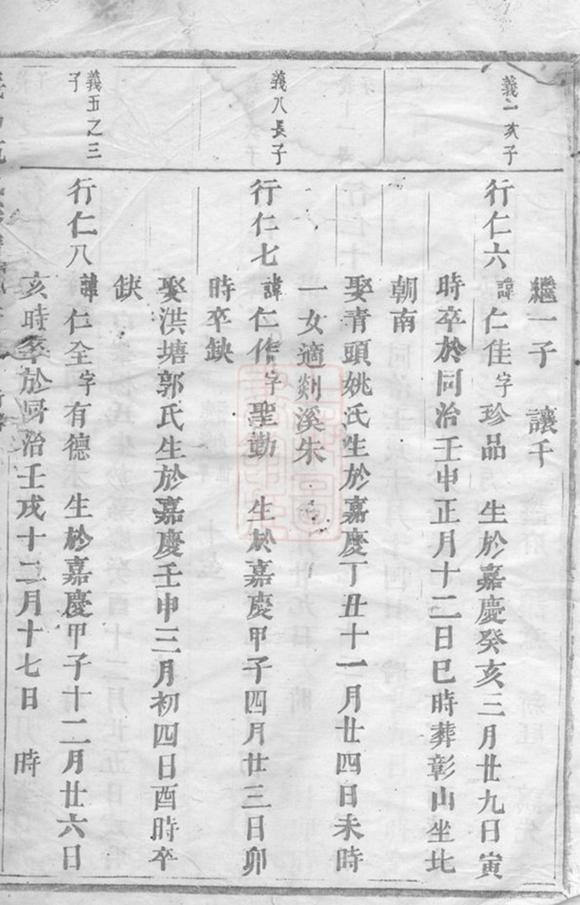 繼一子 讓千
義二次子
行仁六 諱仁佳字珍品 生於嘉慶癸亥三月廿九日寅
時卒於同治壬申正月十二日巳時葬彰山坐北
朝南
娶青頭姚氏生於嘉慶丁丑十一月廿四日未時
一女適剡溪朱
義八長子
行仁七 諱仁作字聖勤 生於嘉慶甲子四月廿三日卯
時卒缺
娶洪塘郭氏生於嘉慶壬申三月初四日酉時卒
缺
義五之三
子
行仁八 諱仁全字有德 生於嘉慶甲子十二月廿六日
亥時卒於同治壬戌十二月十七日 時